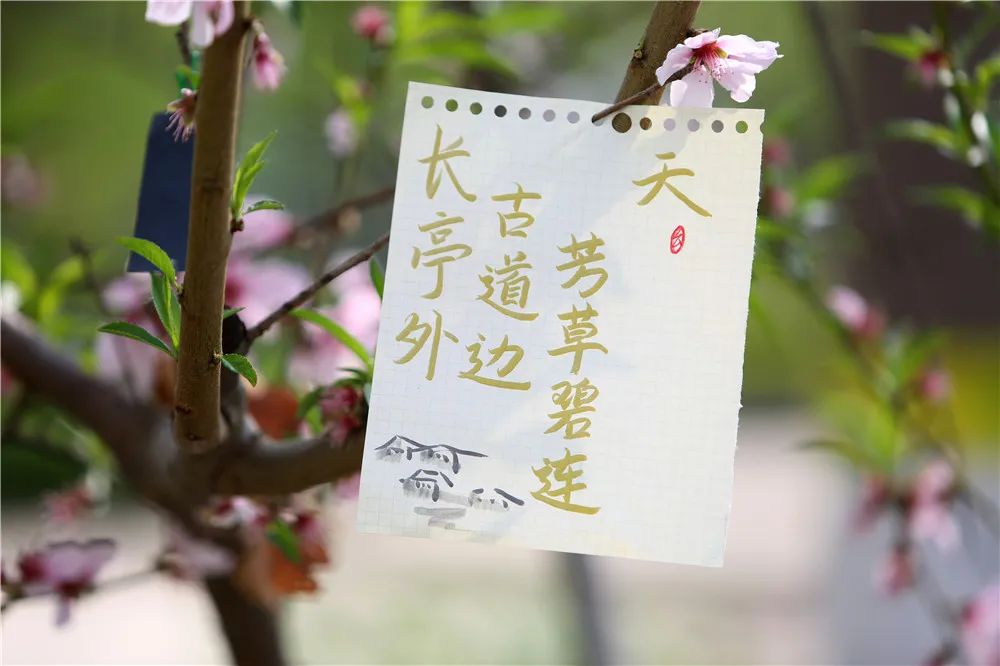 长亭外
古道边
芳草碧连
天